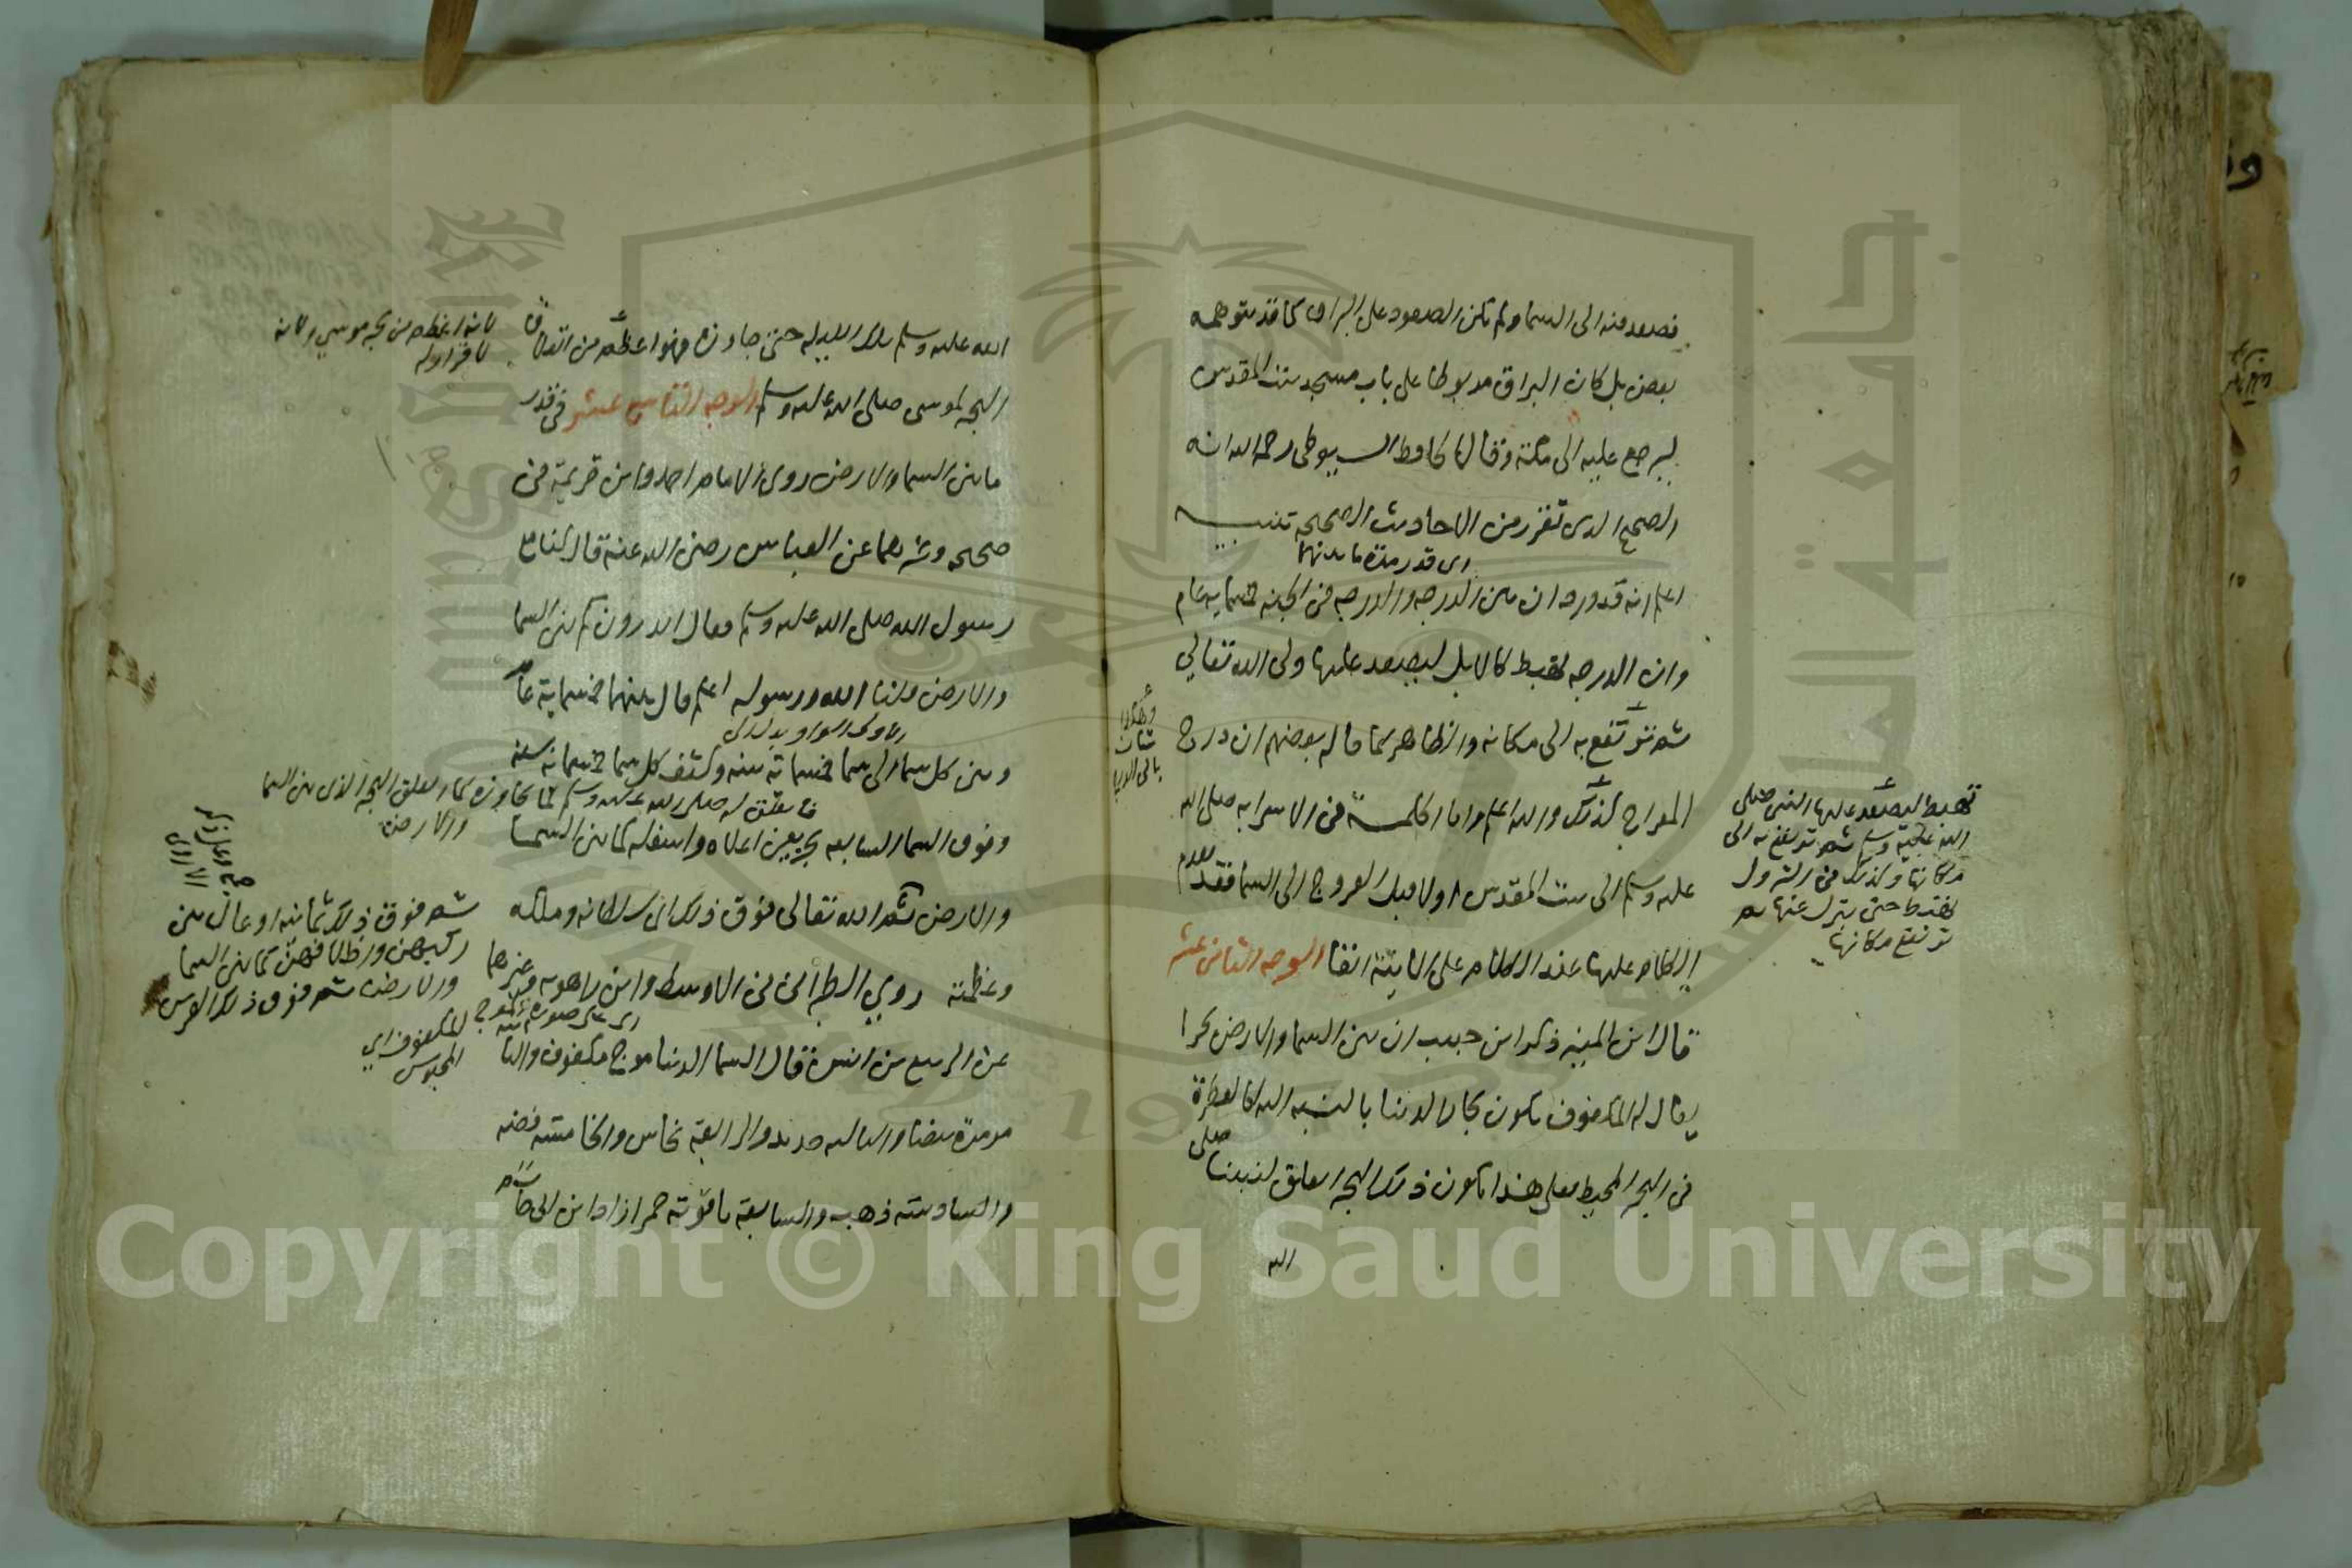 فصعد منه الى السما ولم تكن الصعود على البراق كما قد يتوهمه
بعض بل كان البراق مربوطا على باب مسجد بيت المقدس
ليرجع عليه الى مكة وقال الحافظ السيوطى رحمه الله انه
الصحيح الذى تقرر من الاحاديث الصحيحه تنبيه
اى قدر مدة ما بينهما
اعلم انه قد ورد ان بين الدرجه والدرجه فى الجنه خمسمايه عام
وان الدرجه تهبط كالابل ليصعد عليها ولى الله تعالى
ثم ترتفع به الى مكانه والظاهر كما قاله بعضهم ان درج
المعراج كذلك والله اعلم واما الحكمة فى الاسرا به صلى الله
عليه وسلم الى بيت المقدس اولا قبل العروج الى السما فقد تقدم
الكلام عليها عند الكلام على الاية انفا الوجه الثامن عشر
قال ابن المنير ذكر ابن حبيب ان بين السما والارض بحرا
يقال له المكفوف تكون بحار الدنيا بالنسبه اليه كالقطرة
فى البحر المحيط فعلى هذا يكون ذلك البحر انفلق لنبينا صلى
الله
تهبط ليصعد عليها النبى صلى
الله عليه وسلم ثم ترتفع به الى
مكانها وكذلك فى النزول
تهبط حتى ينزل عنها ثم
ترتفع مكانها
الله عليه وسلم تلك الليله حتى جاوزه فهو اعظم من انفلاق
البحر لموسى صلى الله عليه وسلم الوجه التاسع عشر فى قدر
ما بين السما والارض روى الامام احمد وابن خزيمة فى
صحيحه وغيرهما عن العباس رضى الله عنه قال كنا مع
رسول الله صلى الله عليه وسلم فقال اتدرون كم بين السما
والارض قلنا الله ورسوله اعلم قال بينهما خمسماية عام
وبين كل سما الى سما خمسماية سنه وكثف كل سما خمسماية سنه
وفوق السما السابعه بحر بين اعلاه واسفله كما بين السما
والارض ثم الله تعالى فوق ذلك اى سلطانه وملكه
وعظمته روى الطبرانى فى الاوسط وابن راهويه وغيرهما
عن الربيع بن انس قال السما الدنيا موج مكفوف والثانية
مرمرة بيضا والثالثه حديد والرابعة نحاس والخامسة فضه
والسادسة ذهب والسابعة ياقوتة حمرا زاد ابن ابى حاتم
لانه اعظم من بحر موسى ولانه
فانفلق له صلى الله عليه وسلم لما جاوزه كما انفلق البحر الذى بين السما
والارض
ثم فوق ذلك ثمانية اوعال بين
ركبهن واظلافهن كما بين السما
والارض ثم فوق ذلك العرش
المكفوف اى
المحبوس
Copyright © King Saud University